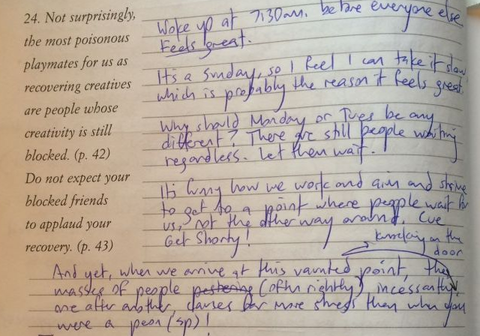 24. Not surprisingly,
the most poisonous
playmates for us as
recovering creatives
are people whose
creativity is still
blocked. (p. 42)
Do not expect your
blocked friends
to applaud your
recovery. (p. 43)
Woke up at 7:30am. before everyone else
feels great.
It's a Sunday, so I feel I can take it slow
which is probably the reason it feels great.
Why should Monday or Tues be any
different? There are still people waiting
regardless. Let them wait.
It's funny how we work and aim and strive
to get to a point where people wait for
us, not the other way around. Cue
Get Shorty!
knocking on the
door
And yet, when we arrive at this vaunted point, the
masses of people pestering (often rightly) incessantly
one after another causes far more stress than when you
were a peon (sp)!